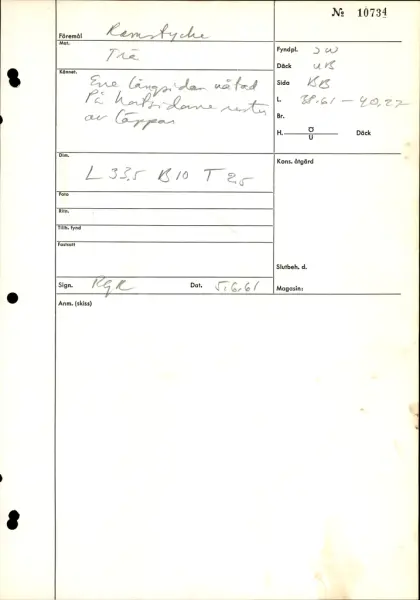 № 10734
Föremål Ramstycke
Mat. Trä
Fyndpl. JW
Däck UB
Sida BB
L. 38.61 – 40.27
Br.
H. Ö/U Däck
Kännet. Ene långsidan nåtad
På kortsidorna rester
av tappar
Dim. L 33,5 B 10 T 2,5
Kons. åtgärd
Foto
Ritn.
Tillh. fynd
Fortsatt
Slutbeh. d.
Sign. RGR Dat. 5.6.61
Magasin:
Anm. (skiss)